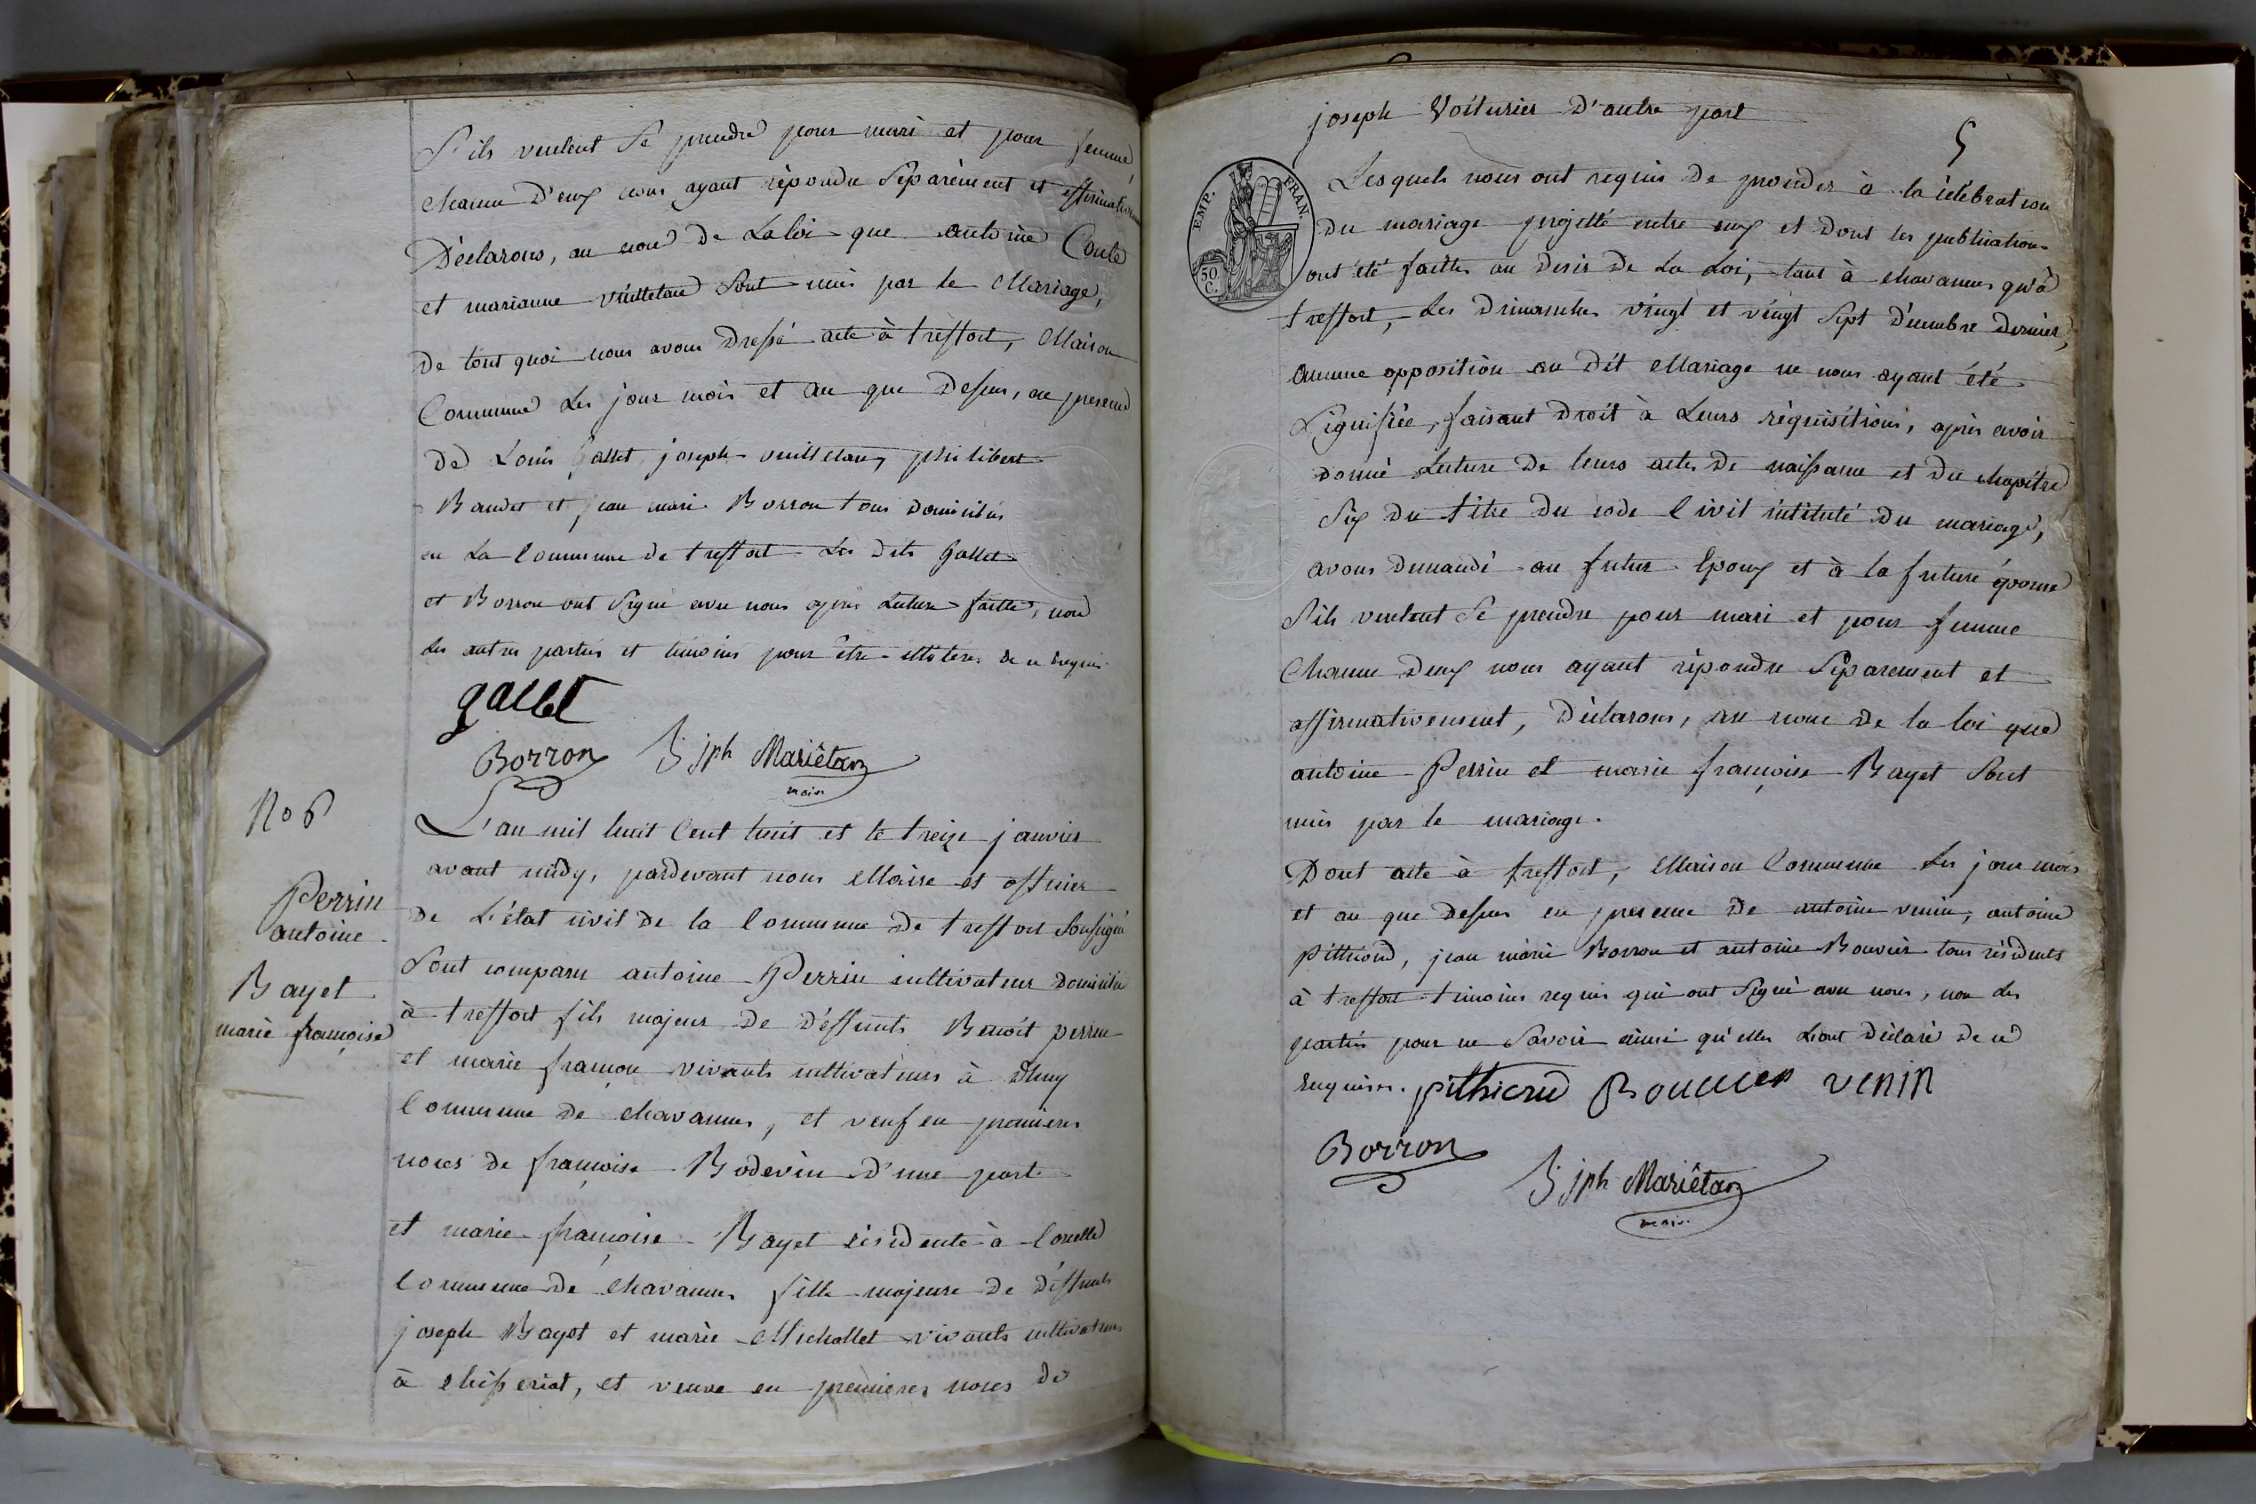 S'ils veulent Se prendre pour mari et pour femme,
chacun D'eux nous ayant répondu Séparément et affirmativement
Déclarons, au nom de La loi que antoine Conte
et marianne vuilletan Sont unis par le Mariage,
de tout quoi nous avons Dressé acte à treffort, Maison
Commune Les jour mois et an que Dessus, en presence
de Louis gallet, joseph vuilletan, philibert
Baudet et jean marie Borron tous Domiciliés
en La Commune de treffort Les Dits Gallet
et Borron ont Signé avec nous après Lecture faitte, non
les autres parties et témoins pour être illitérés de ce Enquis
gallet
Borron B jph Mariêtan
maire
No 6
Perrin
antoine.
Bayet
marie françoise
L'an mil huit Cent huit et le treize janvier
avant midy, pardevant nous Maire et officier
De L'état civil de la Commune de treffort Soussigné
Sont comparu antoine Perrin cultivateur Domicilié
à treffort fils majeur de déffunts Benoît perrin
et marie françon vivants cultivateurs à
Commune de chavannes, et veuf en premières
noces de françoise Bodevin D'une part
et marie françoise Bayet résidente à Corcelle
Commune de Chavannes fille majeure de Déffunts
joseph Bayet et marie Michallet vivants cultivateurs
à chisseriat, et veuve en premieres noces de
5
joseph Voiturier D'autre part
EMP. FRAN.
50 C.
Lesquels nous ont requis De proceder à la célébration
Du mariage projetté entre eux et Dont les publications
ont été faittes au desir De La Loi, tant à chavannes qu'à
treffort, Les Dimanches vingt et vingt Sept Décembre dernier,
Aucune opposition au Dit Mariage ne nous ayant été
Signifiée, faisant Droit à Leurs réquisitions, après avoir
Donné Lecture De leurs actes De naissance et Du chapitre
Six Du titre Du code Civil intitulé Du mariage,
avons Demandé au futur Epoux et à la future épouse
S'ils veulent Se prendre pour mari et pour femme
Chacun Deux nous ayant répondu Séparement et
affirmativement, Déclarons, au nom De la loi que
antoine Perrin et marie françoise Bayet Sont
unis par le mariage.
Dont acte à treffort, Maison Commune Les jour mois
et an que dessus en presence De antoine venin, antoine
Pithioud, jean marie Borron et antoine Bouvier tous résidents
à treffort témoins requis qui ont Signé avec nous, non les
parties pour ne Savoir ainsi qu'elles L'ont Déclaré De ce
Enquises. pithioud Bouvier venin
Borron
B jph Mariêtan
maire